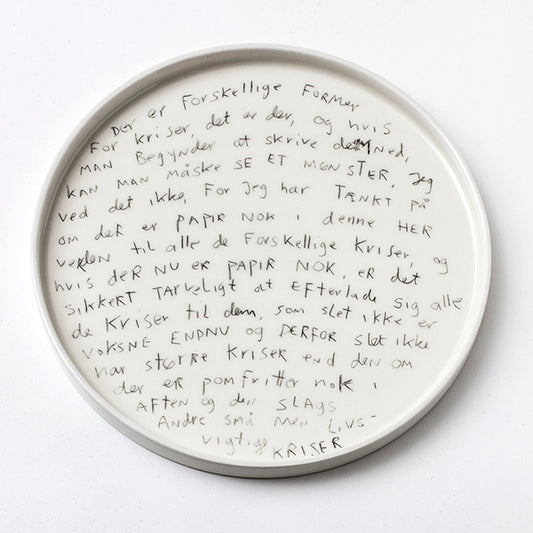 Der er Forskellige FORMer
For kriser, det er der, og hvis
MAN Begynder at skrive det NED,
kan MAN MÅSKE SE ET MØNSTER, Jeg
ved det ikke, For Jeg har TÆNKT PÅ
om deR er PAPIR NOK i denne HER
verden til alle de Forskellige Kriser, og
hvis deR NU eR PAPIR NOK, eR det
sikkeRT TARveligt at EFterlade sig alle
de Kriser til dem, som slet ikke er
voksne ENDNU og DERFOR slet ikke
har større Kriser end den om
der eR pomFritter nok i
AFTen og den SLAGS
Andre små men LIVS-
vigtige KRISER